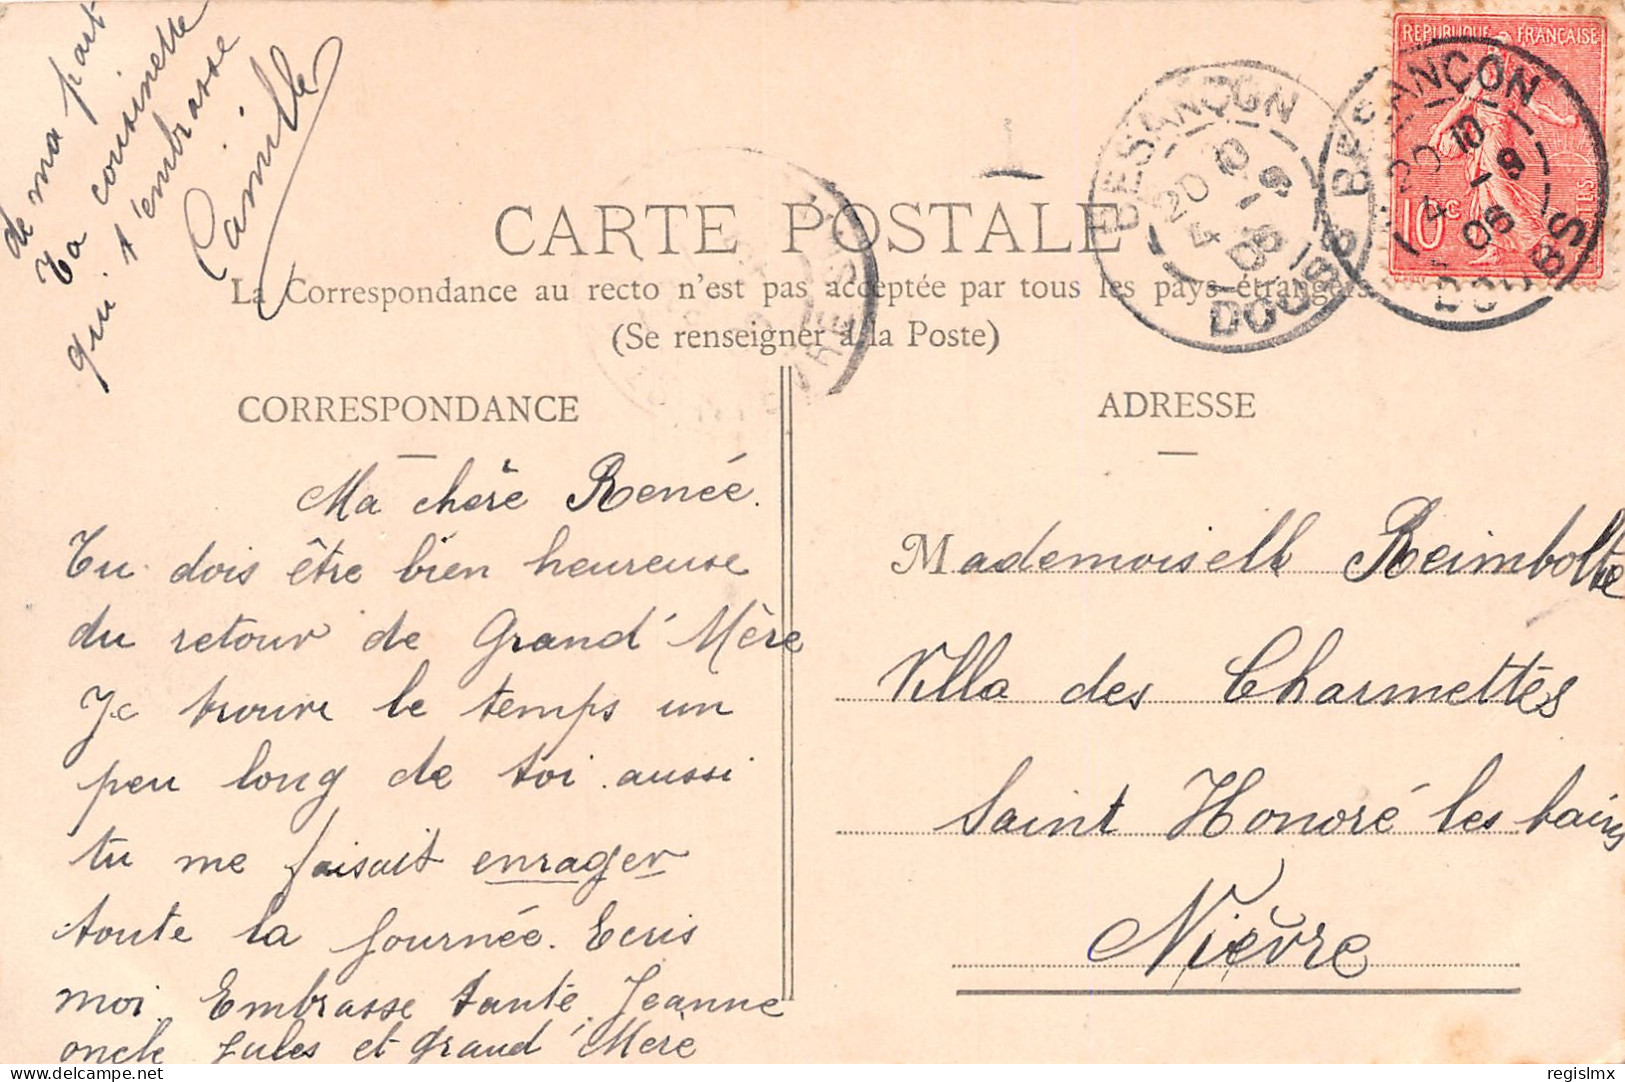 CARTE POSTALE
La Correspondance au recto n'est pas acceptée par tous les pays étrangers
(Se renseigner à la Poste)
REPUBLIQUE FRANÇAISE
10c
POSTES
BESANÇON
20 10
4 - 9
06
DOUBS
BESANÇON
20 10
4 - 9
06
DOUBS
CORRESPONDANCE
Ma chère Renée.
Tu dois être bien heureuse
du retour de Grand' Mère
Je trouve le temps un
peu long de toi aussi
tu me faisait enrager
toute la journée. Ecris
moi. Embrasse tante Jeanne
oncle Jules et Grand' Mère
de ma part
Ta cousinette
qui t'embrasse
Camille
ADRESSE
Mademoiselle Reimbolte
Villa des Charmettes
Saint Honoré les bains
Nièvre
delcampe.net
regislmx